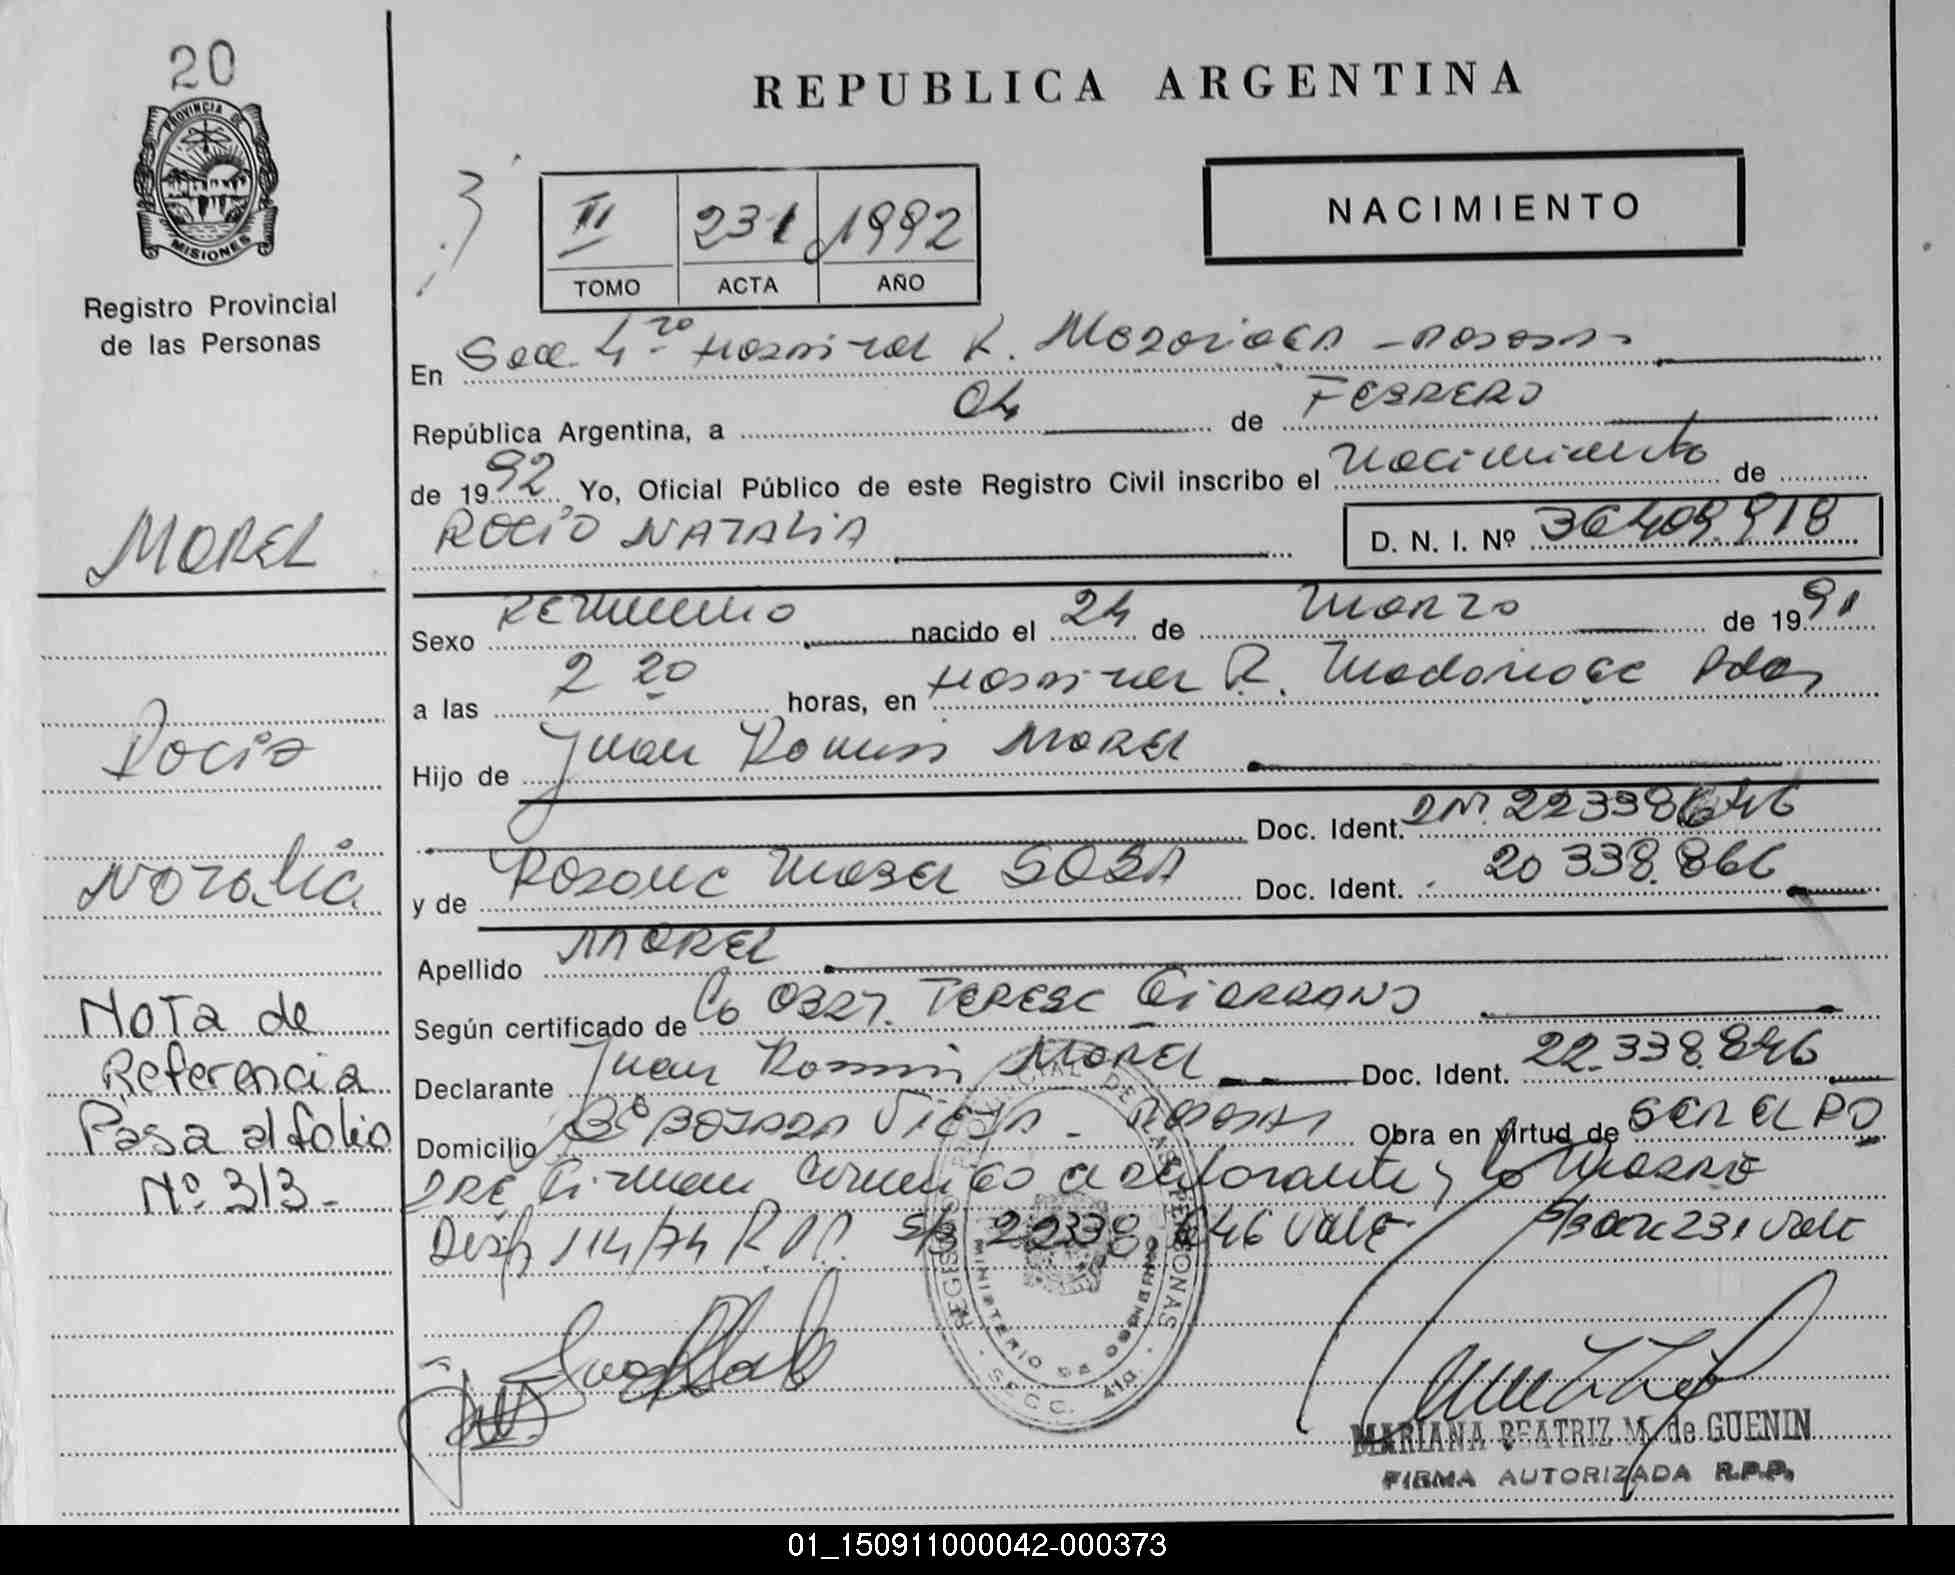 20
PROVINCIA DE
MISIONES
Registro Provincial
de las Personas
REPUBLICA ARGENTINA
3
II 231 1992
TOMO ACTA AÑO
NACIMIENTO
En Secc 4ta Hospital R. Madariaga - Posadas
República Argentina, a 04 de FEBRERO
de 1992 Yo, Oficial Público de este Registro Civil inscribo el Nacimiento de
ROCIO NATALIA D. N. I. Nº 36409.918
MOREL
Rocio
Natalia
Nota de
Referencia
Pasa al folio
Nº 313.-
Sexo FEMENINO nacido el 24 de Marzo de 1991
a las 2 20 horas, en Hospital R. Madariaga Pdas
Hijo de Juan Ramon MOREL
Doc. Ident.
y de Mabel SOSA Doc. Ident. 20 338.866
Apellido MOREL
Según certificado de 0327. TERESA
Declarante Juan Ramon MOREL Doc. Ident. 22.338.846
Domicilio Bº VIEJA - POSADAS Obra en virtud de SER EL PA
DRE Firman declarante y la MADRE
Disp 114/74 R.P.P. S/B 22338 846 VALE S/B 231 Vale
REGISTRO PROVINCIAL DE LAS PERSONAS
MINISTERIO DE GOBIERNO
SECC. 4ta.
MARIANA BEATRIZ M. de GUENIN
FIRMA AUTORIZADA R.P.P.
01_150911000042-000373